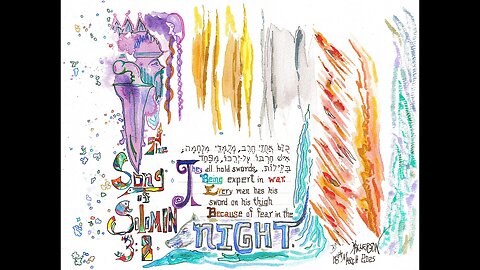 The
Song
of
SoloMON
3:8
כֻּלָּם אֲחֻזֵי חֶרֶב, מְלֻמְּדֵי מִלְחָמָה,
אִישׁ חַרְבּוֹ עַל-יְרֵכוֹ, מִפַּחַד
בַּלֵּילוֹת.
They all hold swords,
Being expert in war
Every man has his
sword on his thigh
Because of fear in the
NIGHT